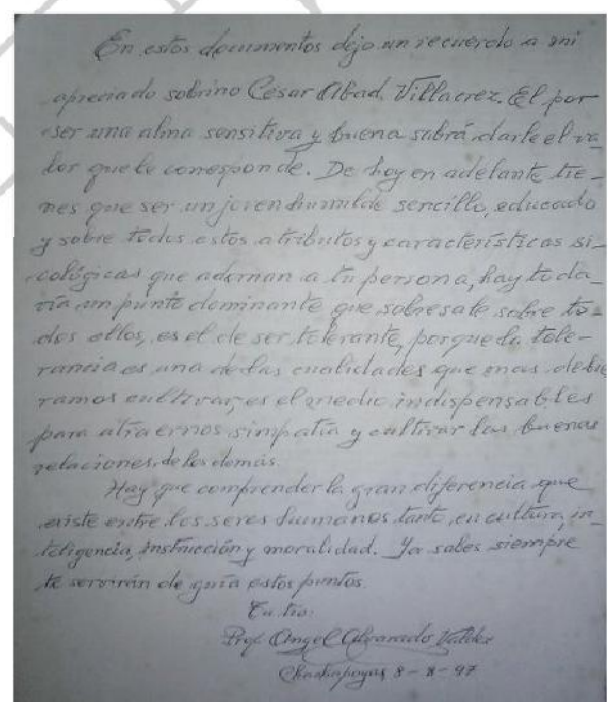 En estos documentos dejo un recuerdo a mi
apreciado sobrino César Abad Villacrez. El por
ser una alma sensitiva y buena sabrá darle el va-
lor que le corresponde. De hoy en adelante tie-
nes que ser un joven humilde sencillo, educado
y sobre todos estos atributos y características si-
cológicas que adornan a tu persona, hay toda-
vía un punto dominante que sobresale sobre to-
dos ellos, es el de ser tolerante, porque la tole-
rancia es una de las cualidades que mas debie
ramos cultivar, es el medio indispensables
para atraernos simpatía y cultivar las buenas
relaciones de los demás.
Hay que comprender la gran diferencia que
existe entre los seres humanos tanto en cultura, in-
teligencia, instrucción y moralidad. Ya sabes siempre
te servirán de guía estos puntos.
Tu tío:
Prof. Angel Alvarado Valdez
Chachapoyas 8-8-97